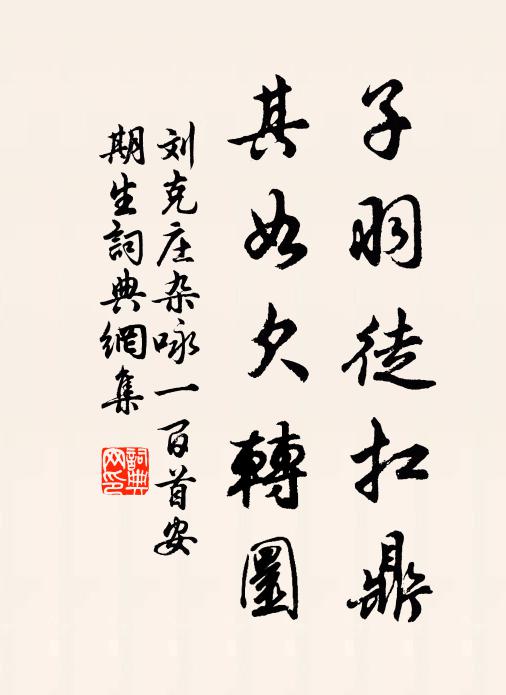 子羽徒扛鼎
其如欠轉圜
刘克庄杂咏一百首安
期生詞典網集
詞典
网印